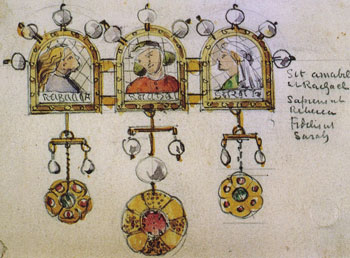 SARAH
Sit amabil
ut Rachael
Sapiens ut
Rebecca
Fidelis ut
Sarah